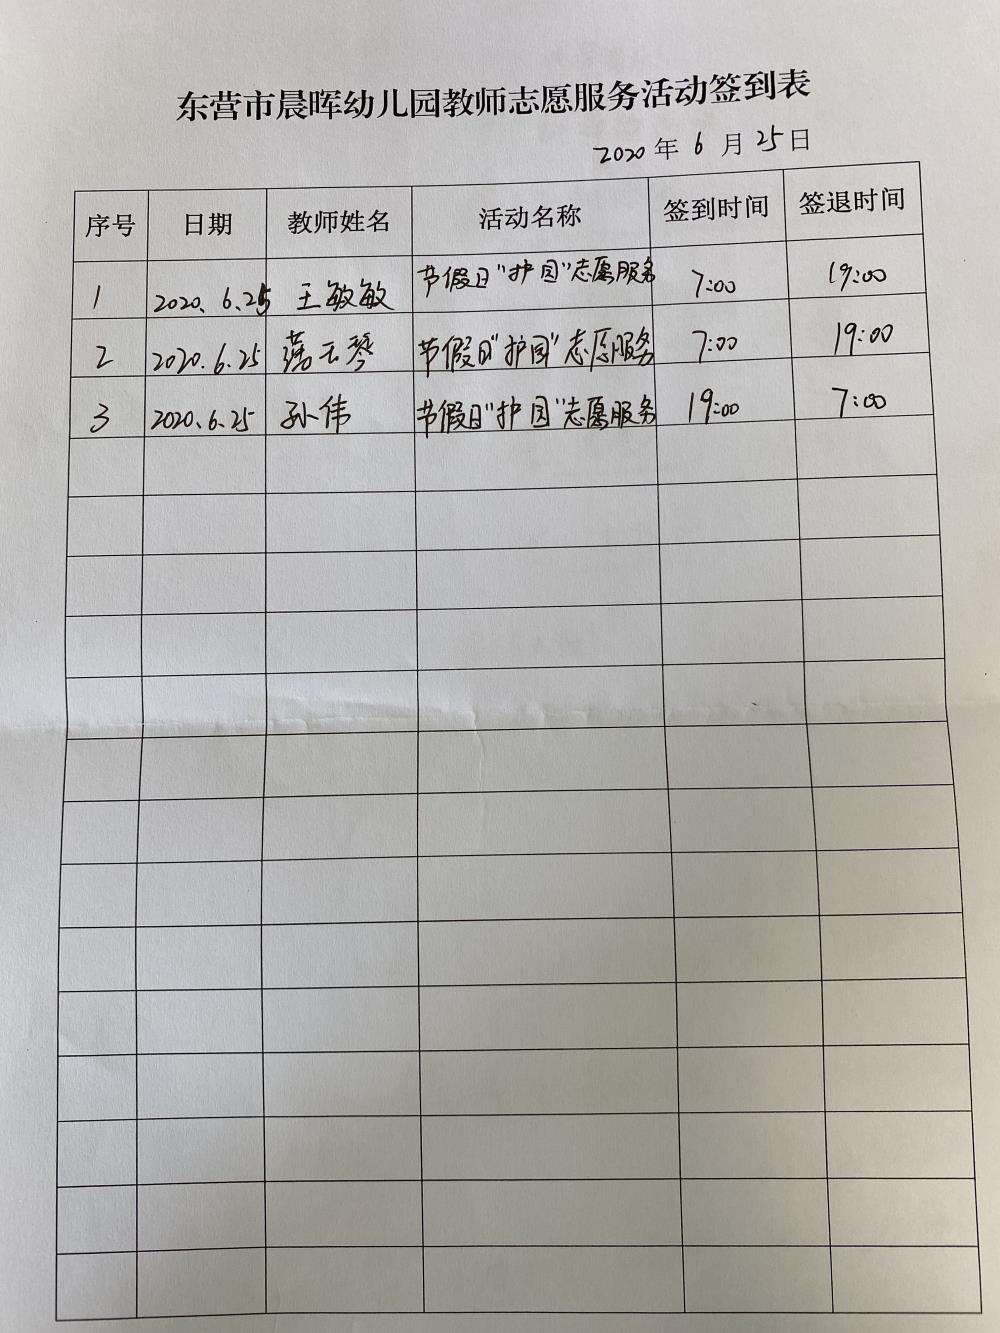 东营市晨晖幼儿园教师志愿服务活动签到表
2020 年 6 月 25 日
序号 日期 教师姓名 活动名称 签到时间 签退时间
1 2020.6.25 王敏敏 节假日“护园”志愿服务 7:00 19:00
2 2020.6.25 节假日“护园”志愿服务 7:00 19:00
3 2020.6.25 孙伟 节假日“护园”志愿服务 19:00 7:00